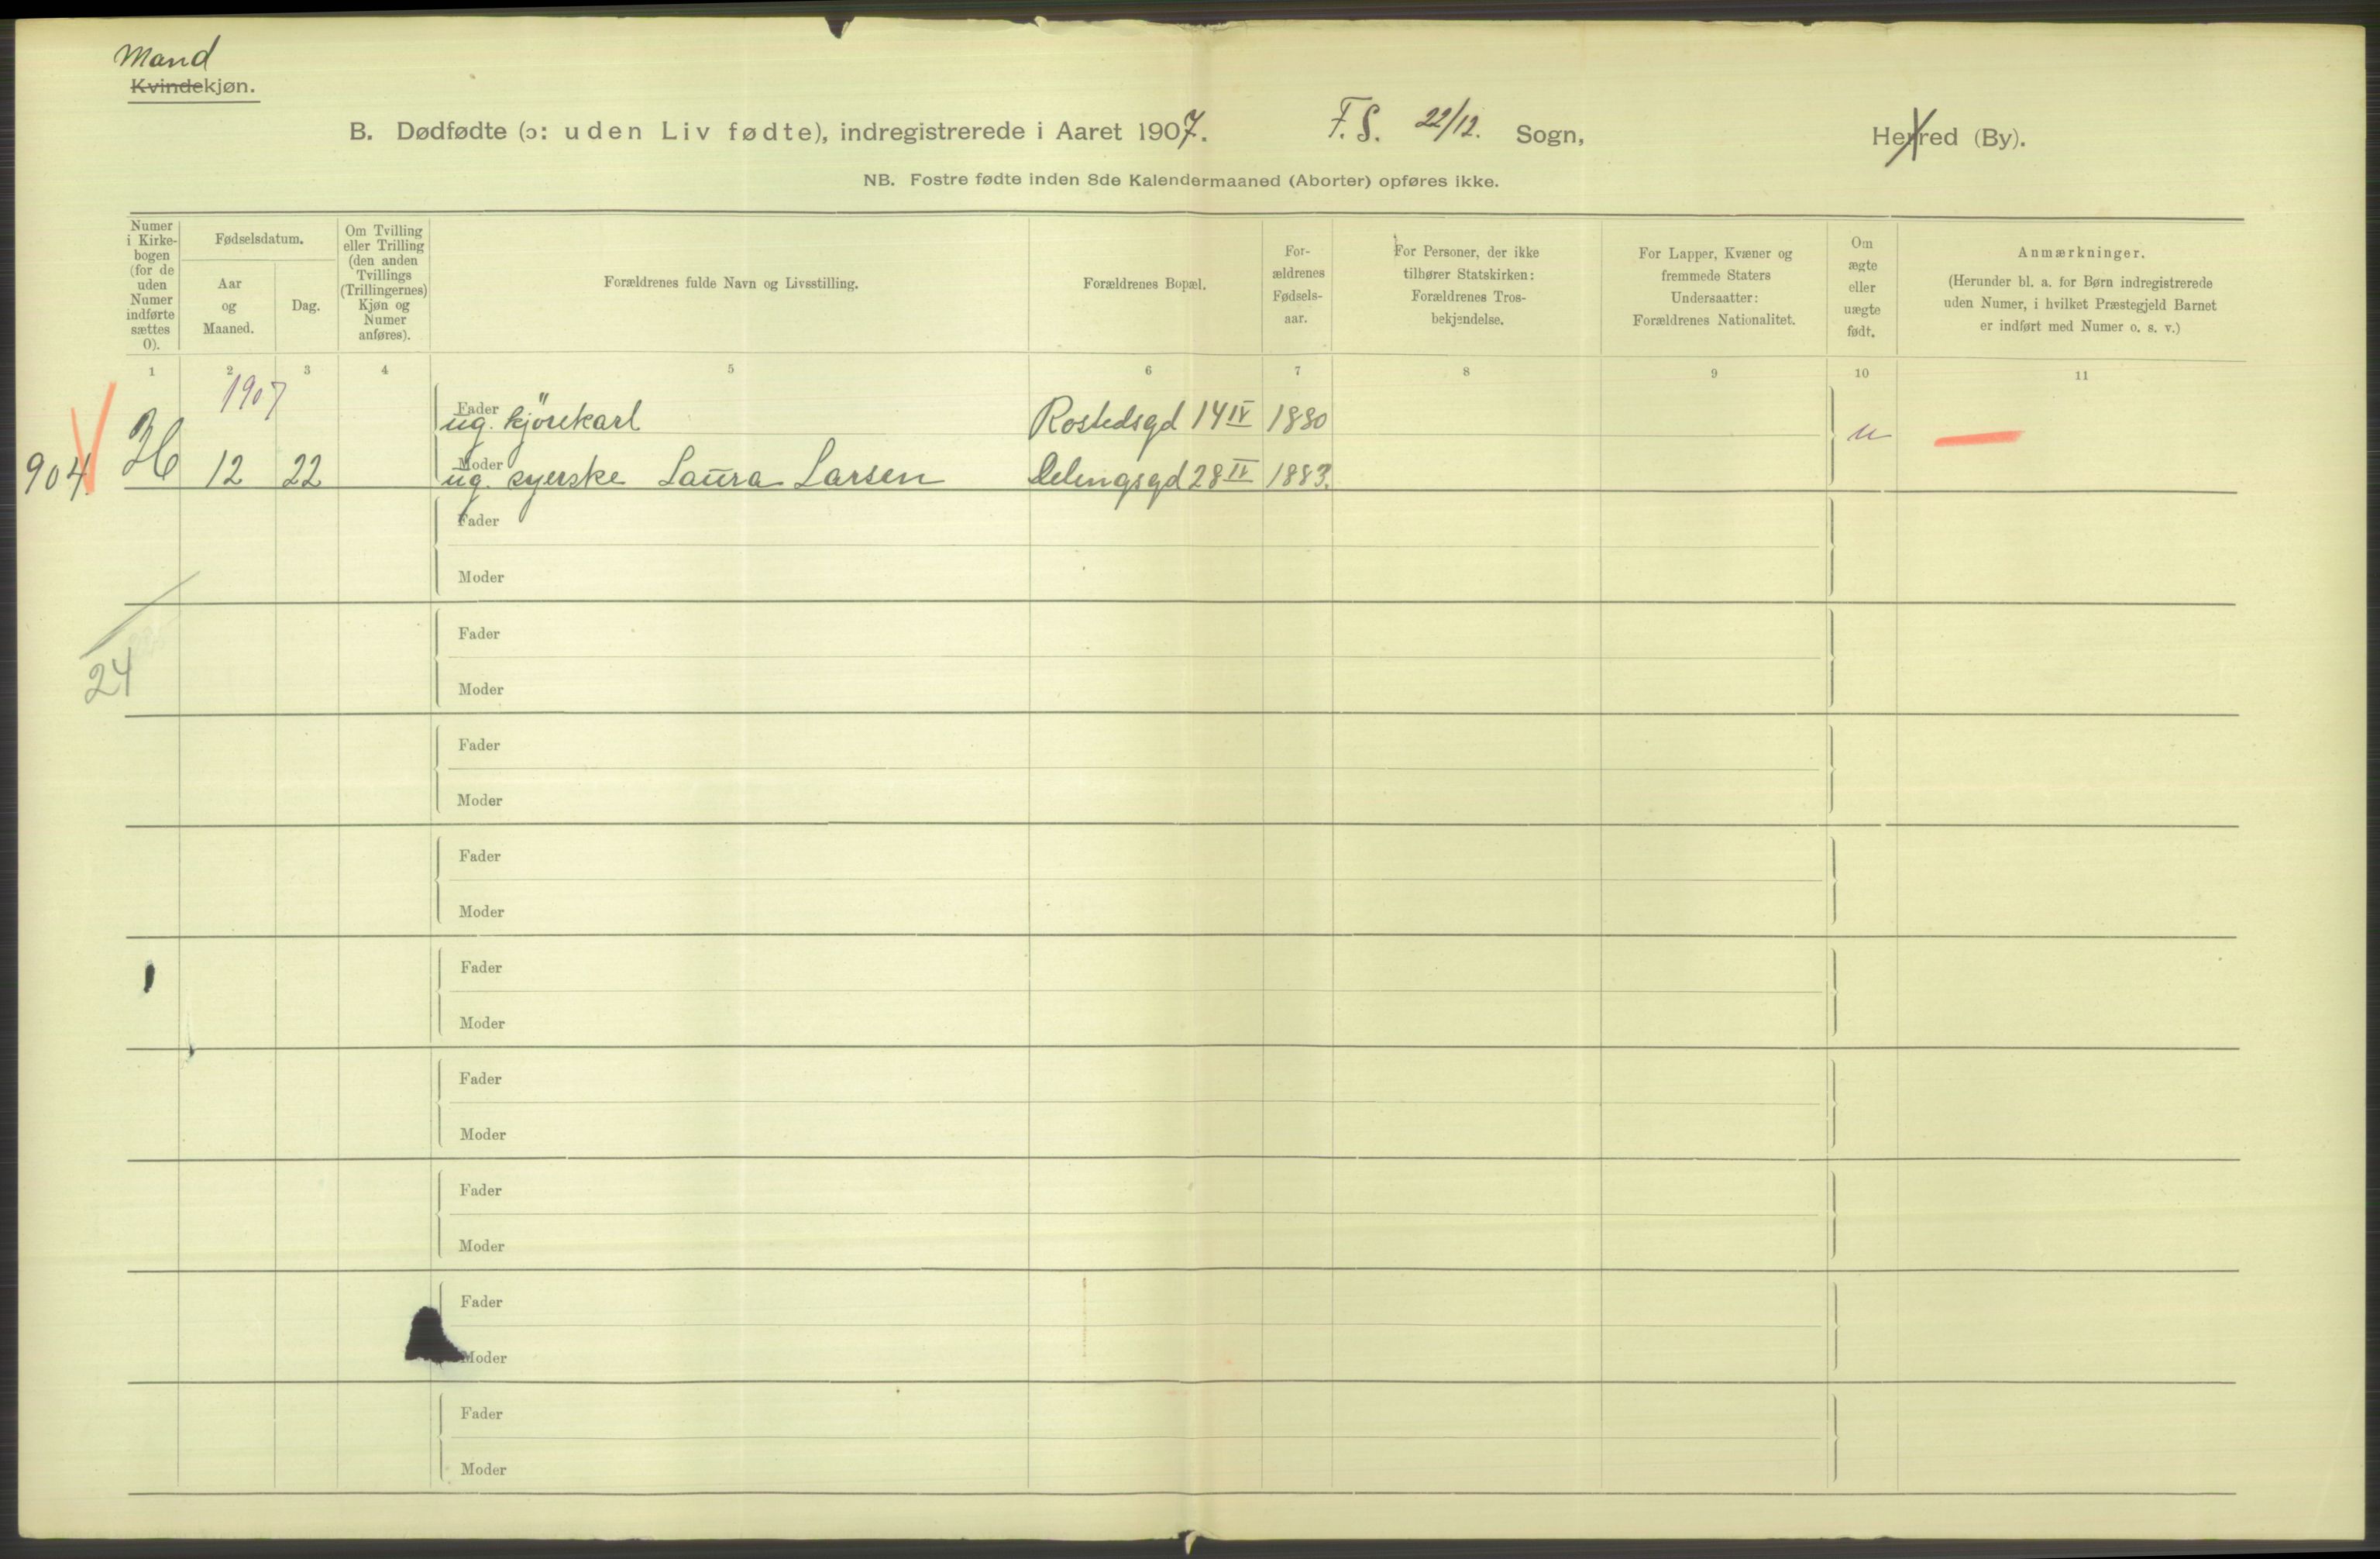 Mand
Kvindekjøn.
B. Dødfødte (ɔ: uden Liv fødte), indregistrerede i Aaret 1907. F.S. 22/12. Sogn, Herred (By).
NB. Fostre fødte inden 8de Kalendermaaned (Aborter) opføres ikke.
Numer i Kirkebogen (for de uden Numer indførte sættes 0).
Fødselsdatum.
Aar og Maaned.
Dag.
Om Tvilling eller Trilling (den anden Tvillings (Trillingernes) Kjøn og Numer anføres).
Forældrenes fulde Navn og Livsstilling.
Forældrenes Bopæl.
Forældrenes Fødselsaar.
For Personer, der ikke tilhører Statskirken: Forældrenes Trosbekjendelse.
For Lapper, Kvæner og fremmede Staters Undersaatter: Forældrenes Nationalitet.
Om ægte eller uægte født.
Anmærkninger.
(Herunder bl. a. for Børn indregistrerede uden Numer, i hvilket Præstegjeld Barnet er indført med Numer o. s. v.)
1 2 3 4 5 6 7 8 9 10 11
1907
Fader ug. kjörekarl Rostedsgd 14 IV 1880 u
904. 12 22 Moder ug. syerske Laura Larsen Delingsgd 28 IV 1883.
Fader
Moder
Fader
24
Moder
Fader
Moder
Fader
Moder
Fader
Moder
Fader
Moder
Fader
Moder
Fader
Moder
Fader
Moder